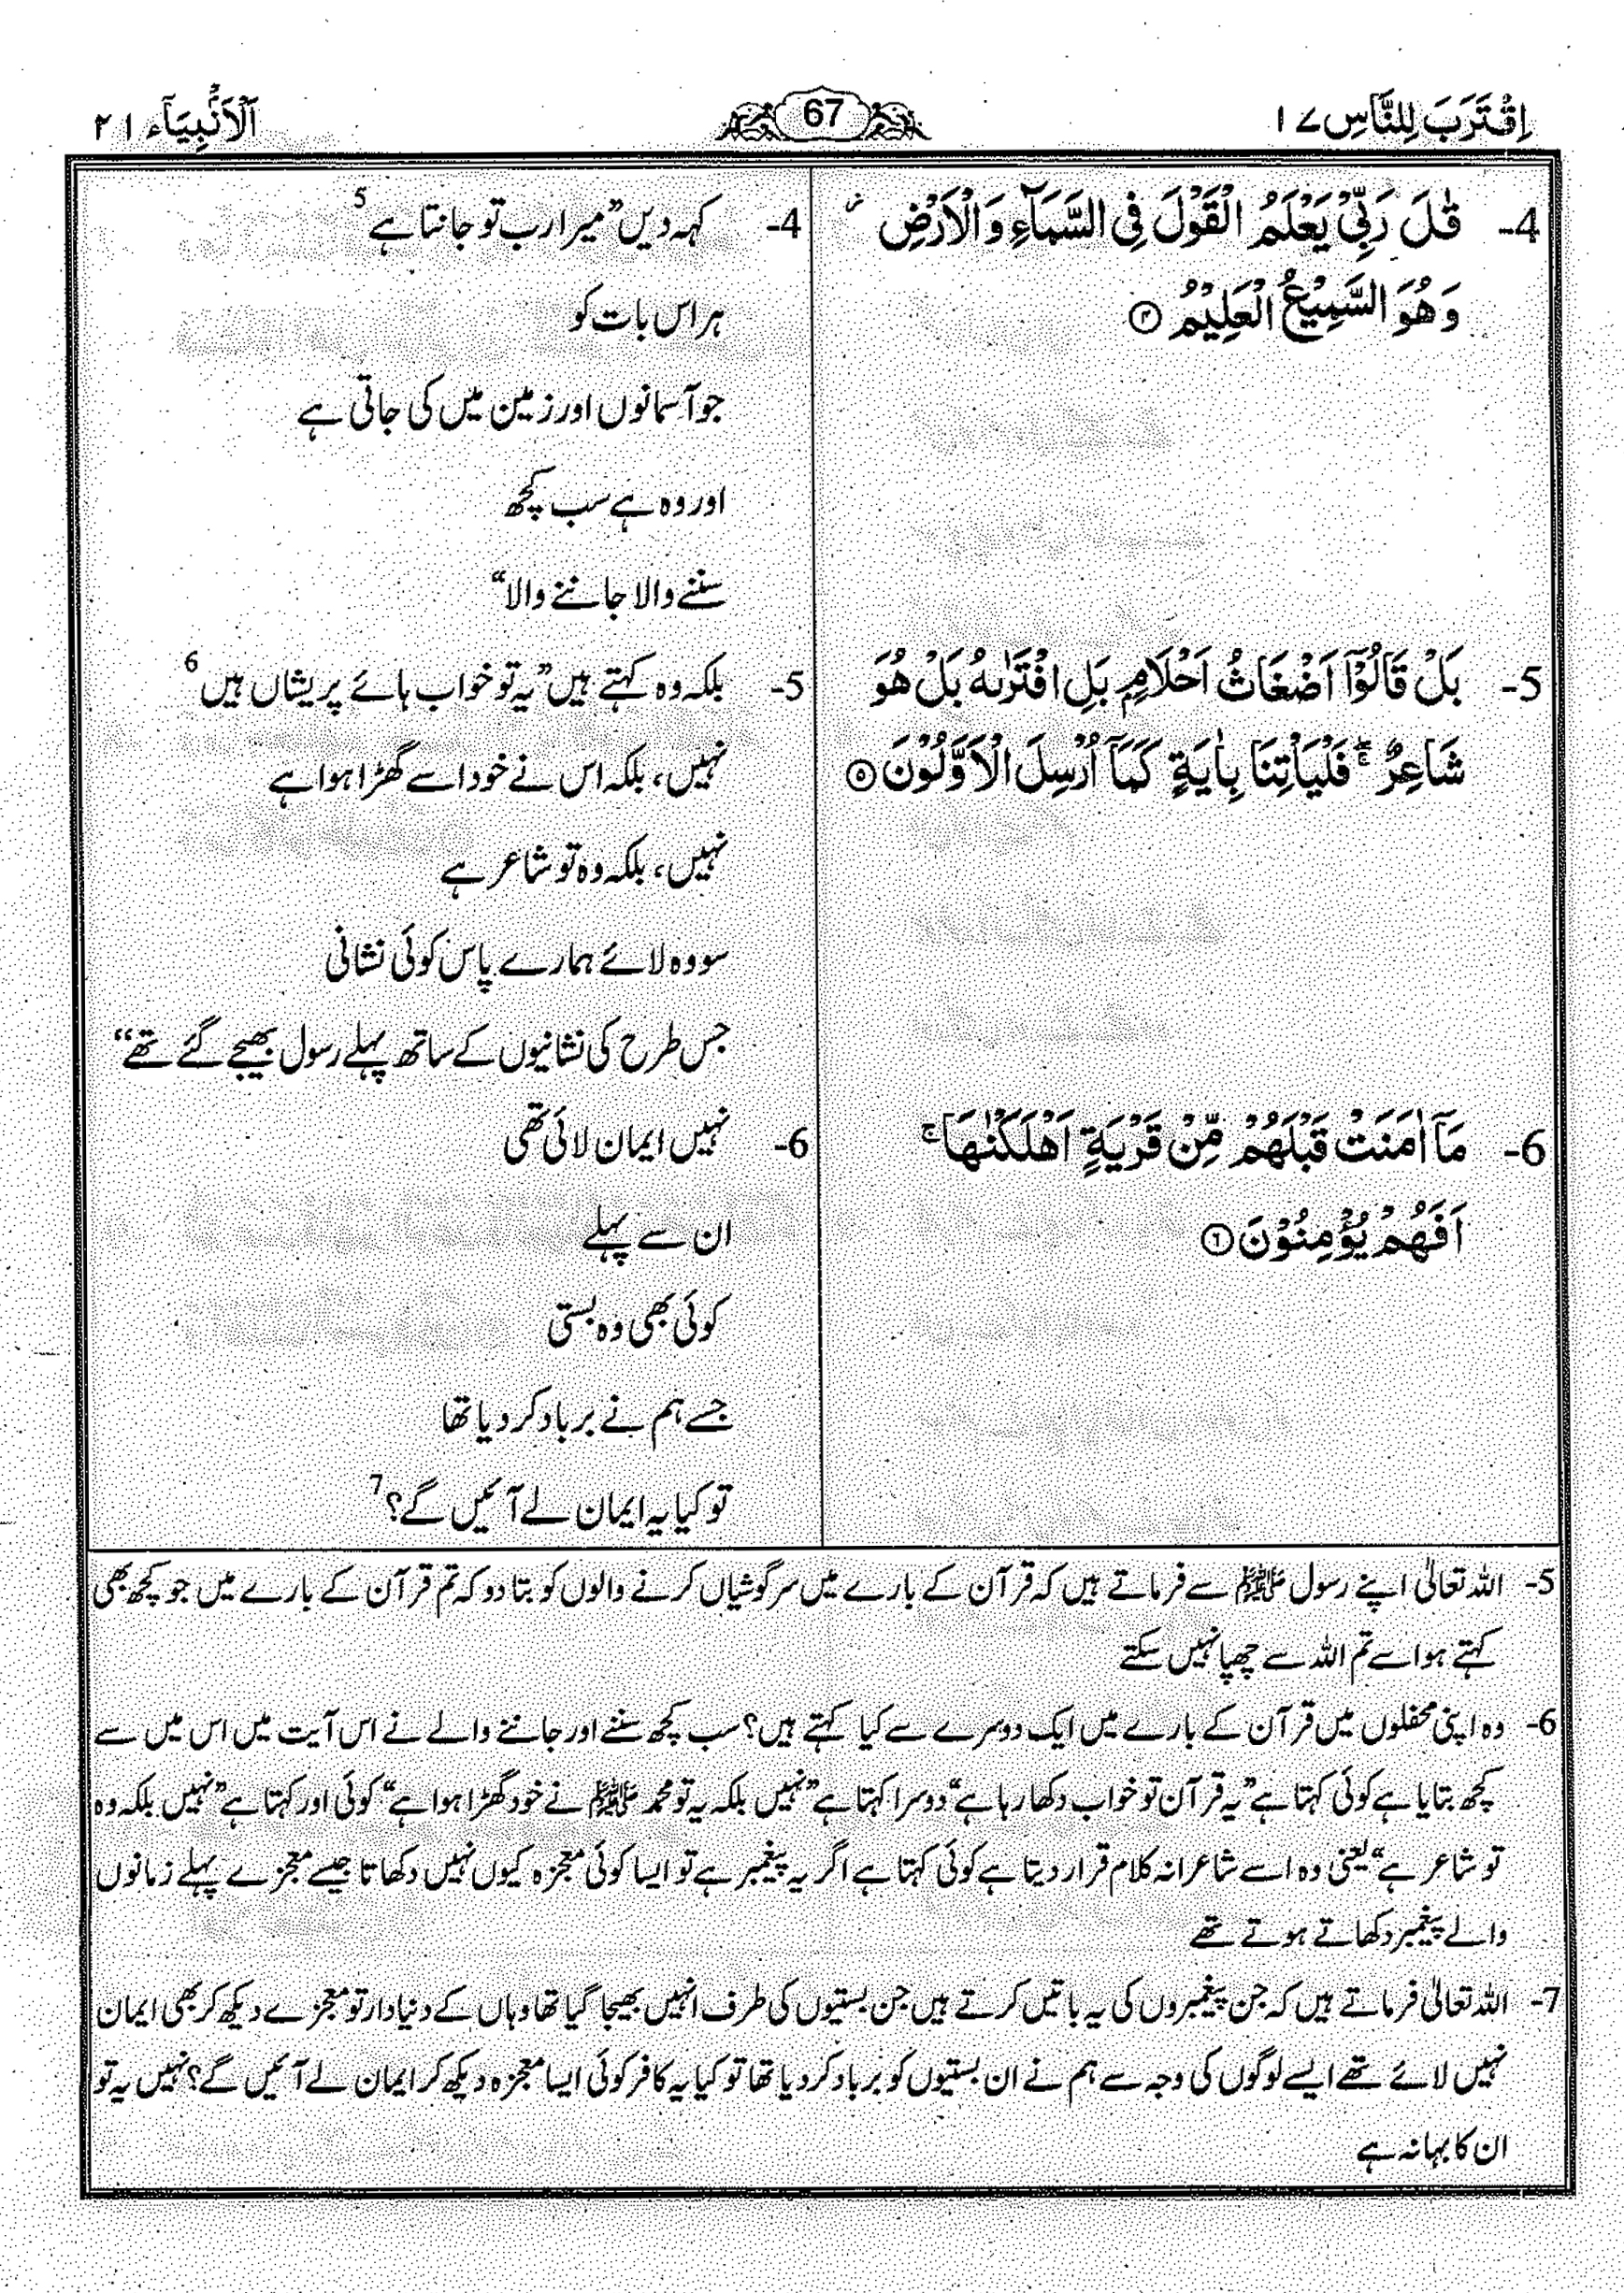 اِقْتَرَبَ لِلنَّاسِ ۱۷
67
اَلْاَنْۢبِیَآء ۲۱
4- قٰلَ رَبِّیْ یَعْلَمُ الْقَوْلَ فِی السَّمَآءِ وَالْاَرْضِ ۫
وَهُوَ السَّمِیْعُ الْعَلِیْمُ ۴
4- کہہ دیں ”میرا رب تو جانتا ہے 5
ہر اس بات کو
جو آسمانوں اور زمین میں کی جاتی ہے
اور وہ ہے سب کچھ
سننے والا جاننے والا“
5- بَلْ قَالُوْۤا اَضْغَاثُ اَحْلَامٍۭ بَلِ افْتَرٰىهُ بَلْ هُوَ
شَاعِرٌ ۚۖ فَلْیَاْتِنَا بِاٰیَةٍ كَمَاۤ اُرْسِلَ الْاَوَّلُوْنَ ۵
5- بلکہ وہ کہتے ہیں ”یہ تو خواب ہائے پریشاں ہیں 6
نہیں، بلکہ اس نے خود اسے گھڑا ہوا ہے
نہیں، بلکہ وہ تو شاعر ہے
سو وہ لائے ہمارے پاس کوئی نشانی
جس طرح کی نشانیوں کے ساتھ پہلے رسول بھیجے گئے تھے“
6- مَاۤ اٰمَنَتْ قَبْلَهُمْ مِّنْ قَرْیَةٍ اَهْلَكْنٰهَا ۚ
اَفَهُمْ یُؤْمِنُوْنَ ۶
6- نہیں ایمان لائی تھی
ان سے پہلے
کوئی بھی وہ بستی
جسے ہم نے برباد کر دیا تھا
تو کیا یہ ایمان لے آئیں گے؟ 7
5- اللہ تعالیٰ اپنے رسول ﷺ سے فرماتے ہیں کہ قرآن کے بارے میں سرگوشیاں کرنے والوں کو بتا دو کہ تم قرآن کے بارے میں جو کچھ بھی
کہتے ہو اسے تم اللہ سے چھپا نہیں سکتے
6- وہ اپنی محفلوں میں قرآن کے بارے میں ایک دوسرے سے کیا کہتے ہیں؟ سب کچھ سننے اور جاننے والے نے اس آیت میں اس میں سے
کچھ بتایا ہے کوئی کہتا ہے ”یہ قرآن تو خواب دکھا رہا ہے“ دوسرا کہتا ہے ”نہیں بلکہ یہ تو محمد ﷺ نے خود گھڑا ہوا ہے“ کوئی اور کہتا ہے ”نہیں بلکہ وہ
تو شاعر ہے“ یعنی وہ اسے شاعرانہ کلام قرار دیتا ہے کوئی کہتا ہے اگر یہ پیغمبر ہے تو ایسا کوئی معجزہ کیوں نہیں دکھاتا جیسے معجزے پہلے زمانوں
والے پیغمبر دکھاتے ہوتے تھے
7- اللہ تعالیٰ فرماتے ہیں کہ جن پیغمبروں کی یہ باتیں کرتے ہیں جن بستیوں کی طرف انہیں بھیجا گیا تھا وہاں کے دنیادار تو معجزے دیکھ کر بھی ایمان
نہیں لائے تھے ایسے لوگوں کی وجہ سے ہم نے ان بستیوں کو برباد کر دیا تھا تو کیا یہ کافر کوئی ایسا معجزہ دیکھ کر ایمان لے آئیں گے؟ نہیں یہ تو
ان کا بہانہ ہے